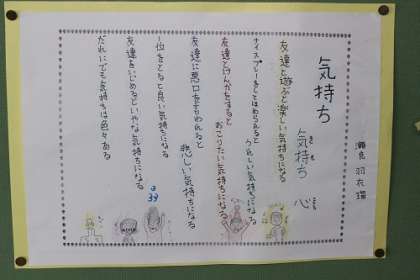 気持ち
気持ち 心
友達と遊ぶと楽しい気持ちになる
ナイスプレーをしてほめられると
うれしい気持ちになる
友達とけんかをすると
おこりたい気持ちになる
友達に悪口を言われると
悲しい気持ちになる
一位をとると良い気持ちになる
友達をいじめるといやな気持ちになる
だれにでも気持ちは色々ある